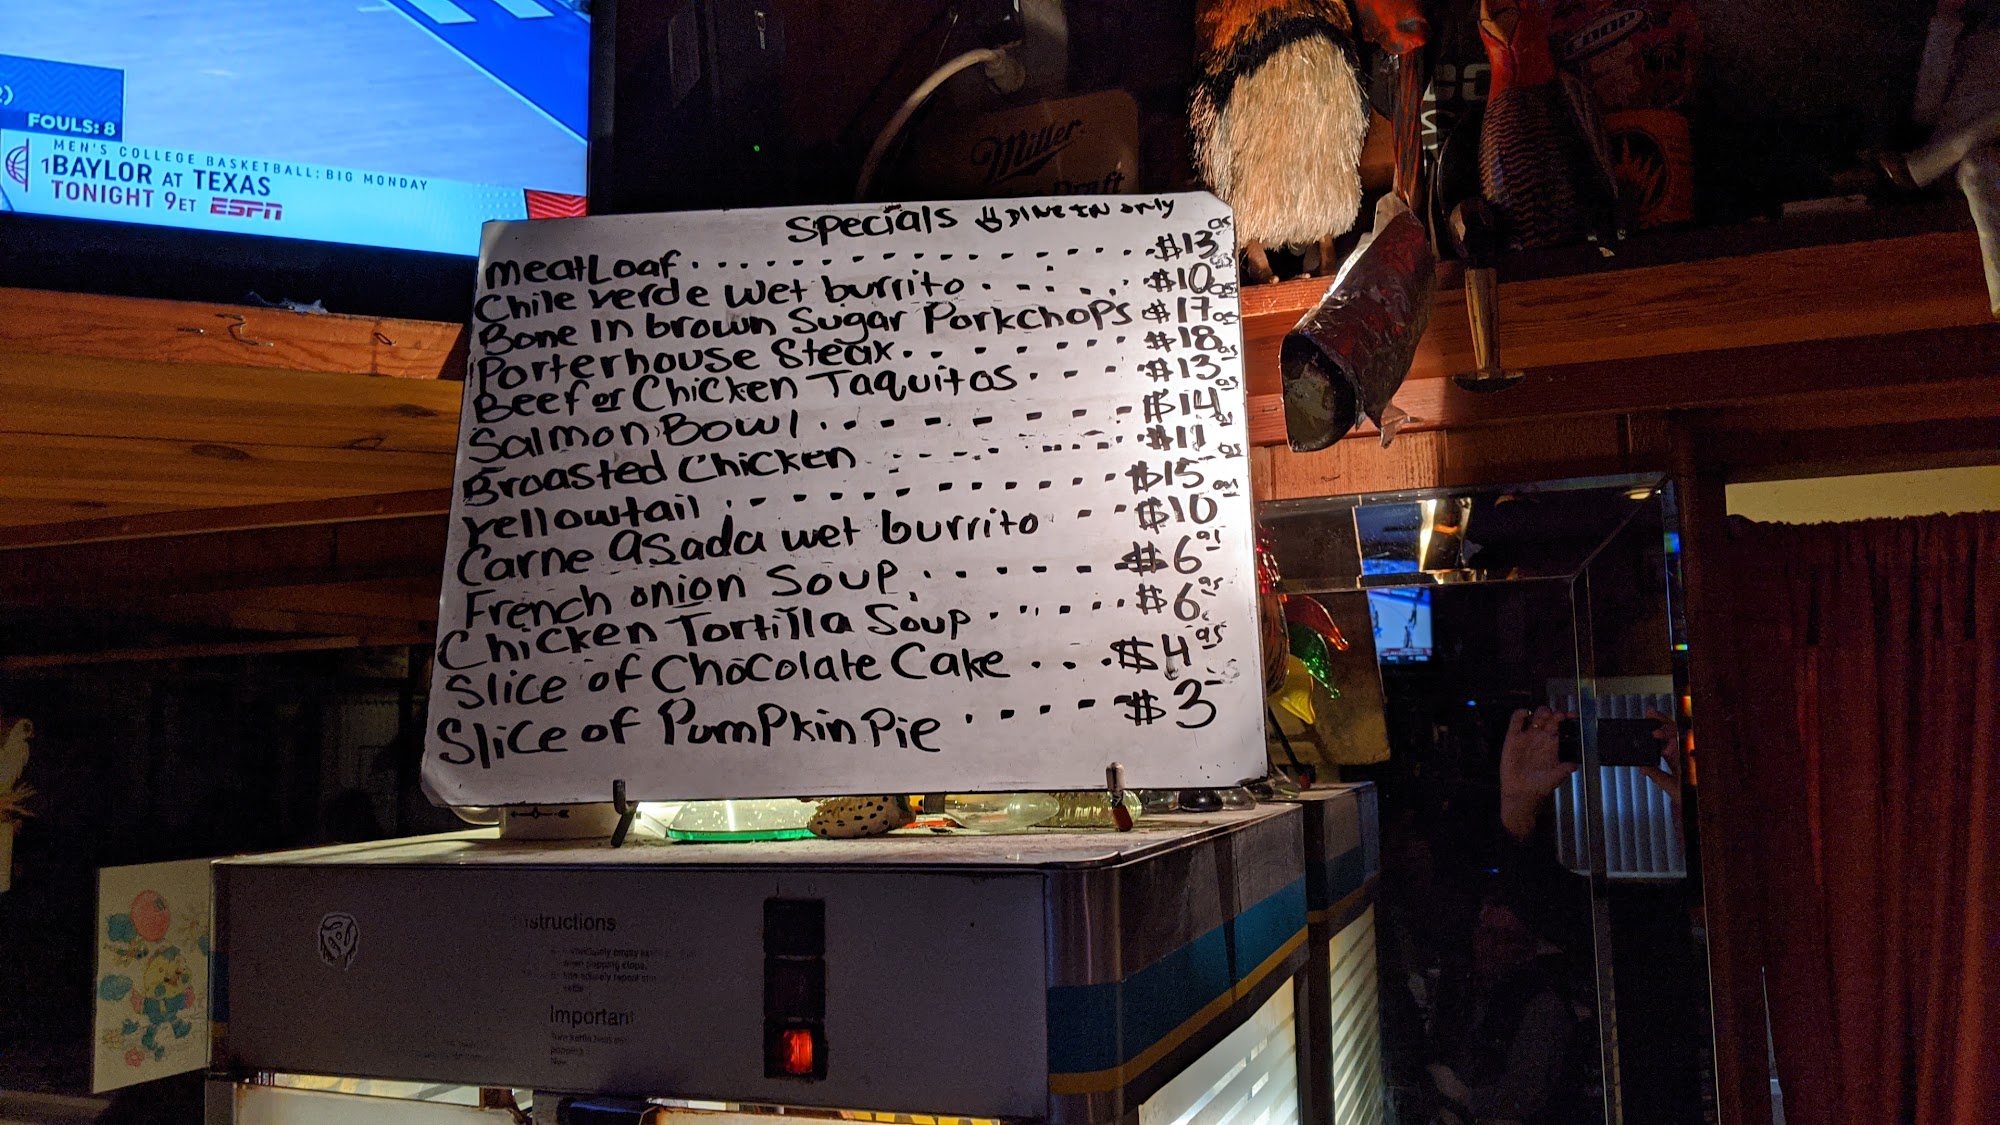 FOULS: 8
MEN'S COLLEGE BASKETBALL: BIG MONDAY
1 BAYLOR AT TEXAS
TONIGHT 9ET ESPN
Miller
Draft
COOP
Specials DINE IN only
meatLoaf $13
Chile verde wet burrito $10
Bone In brown Sugar Porkchops $17
Porterhouse Steak $18
Beef or Chicken Taquitos $13
Salmon Bowl $14
Broasted Chicken $11
Yellowtail $15
Carne asada wet burrito $10
French onion Soup $6
Chicken Tortilla Soup $6
Slice of Chocolate Cake $4
Slice of Pumpkin Pie $3
Instructions
Important